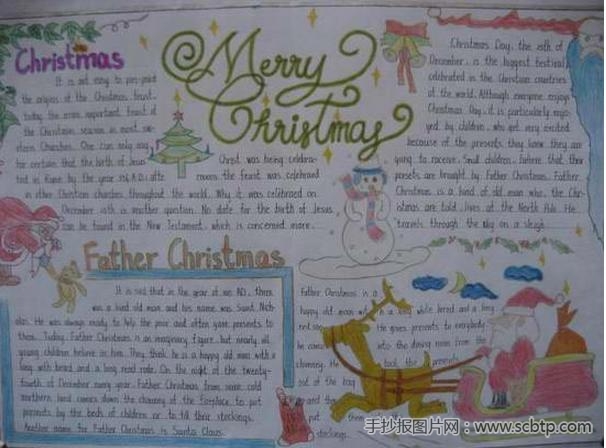 Christmas
It is not easy to pin-point
the origins of the Christmas feast.
today the most important feast of
the Christian season in most we-
stern Churches. One can only say
for certain that the birth of Jesus
in Rome by the year
Christ was being celebra-
the feast was celebrated
in other Christian churches throughout the world. Why it was celebrated on
December is another question. No date for the birth of Jesus
can be found in the New Testament, which is concerned more
Merry
Christmas
Christmas Day, the 25th of
December, is the biggest festival
celebrated in the Christian countries
of the world. Although everyone enjoys
Christmas Day, it is particularly enjo-
yed by children, who get very excited
because of the presents they know they are
going to receive. Small children that their
presets are brought by Father Christmas. Father
Christmas is a kind of old man who, the Chi-
are told, lives at the North Pole. He
travels through the sky on a sleigh
Father Christmas
It is said that in the year of there
was a kind old man and his name was Saint Nich-
olas. He was always ready to help the poor and often gave presents to
them. Today, Father Christmas is an imaginary figure, but nearly all
young children believe in him. They think he is a happy old man with a
long with beard and a long read robe. On the night of the twenty-
fourth of December every year, Father Christmas from some cold
northern land comes down the chimney of the fireplace to put
presents by the beds of children or to fill their stockings.
Another name for Father Christmas is Santa Claus.
Father Christmas is a
happy old man with a long white beard and a long
red He gives presents to everybody
he comes into the dining room from the
chimney. He took the presents
out of the bag
and
put them
手抄报图片网——www.scbtp.com